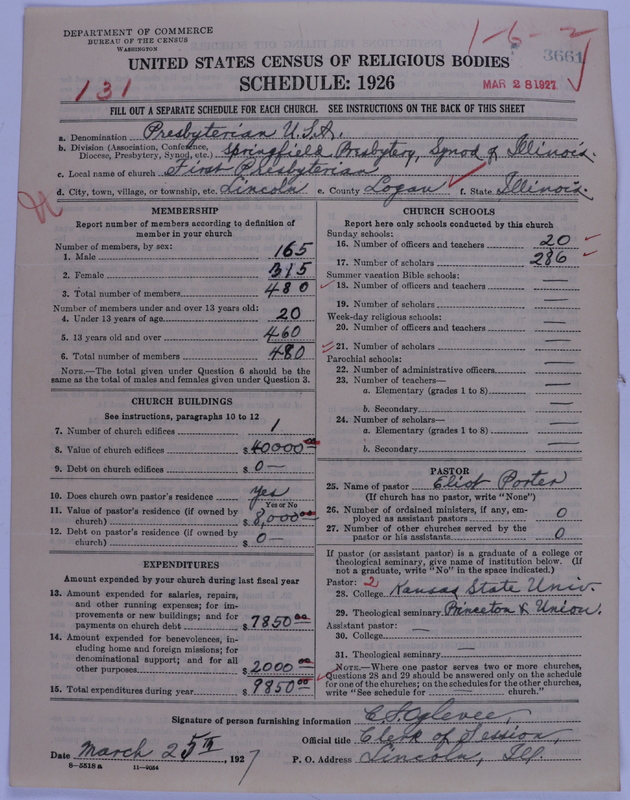 DEPARTMENT OF COMMERCE
BUREAU OF THE CENSUS
WASHINGTON
1-6-2
3661
UNITED STATES CENSUS OF RELIGIOUS BODIES
SCHEDULE: 1926
131
MAR 28 1927
FILL OUT A SEPARATE SCHEDULE FOR EACH CHURCH. SEE INSTRUCTIONS ON THE BACK OF THIS SHEET
a. Denomination Presbyterian U.S.A.
b. Division (Association, Conference, Diocese, Presbytery, Synod, etc.) Springfield Presbytery, Synod of Illinois.
c. Local name of church First Presbyterian
d. City, town, village, or township, etc. Lincoln e. County Logan f. State Illinois.
MEMBERSHIP
Report number of members according to definition of
member in your church
Number of members, by sex:
1. Male 165
2. Female 315
3. Total number of members 480
Number of members under and over 13 years old:
4. Under 13 years of age 20
5. 13 years old and over 460
6. Total number of members 480
NOTE.—The total given under Question 6 should be the
same as the total of males and females given under Question 3.
CHURCH BUILDINGS
See instructions, paragraphs 10 to 12
7. Number of church edifices 1
8. Value of church edifices $ 40000 00
9. Debt on church edifices $ 0—
10. Does church own pastor's residence yes
Yes or No
11. Value of pastor's residence (if owned by
church) $ 8,000 00
12. Debt on pastor's residence (if owned by
church) $ 0—
EXPENDITURES
Amount expended by your church during last fiscal year
13. Amount expended for salaries, repairs,
and other running expenses; for im-
provements or new buildings; and for
payments on church debt $ 7850 00
14. Amount expended for benevolences, in-
cluding home and foreign missions; for
denominational support; and for all
other purposes $ 2000 00
15. Total expenditures during year $ 9850 00
CHURCH SCHOOLS
Report here only schools conducted by this church
Sunday schools:
16. Number of officers and teachers 20
17. Number of scholars 286
Summer vacation Bible schools:
18. Number of officers and teachers —
19. Number of scholars —
Week-day religious schools:
20. Number of officers and teachers —
21. Number of scholars —
Parochial schools:
22. Number of administrative officers —
23. Number of teachers—
a. Elementary (grades 1 to 8) —
b. Secondary —
24. Number of scholars—
a. Elementary (grades 1 to 8) —
b. Secondary —
PASTOR
25. Name of pastor Eliot Porter
(If church has no pastor, write "None")
26. Number of ordained ministers, if any, em-
ployed as assistant pastors 0
27. Number of other churches served by the
pastor or his assistants 0
If pastor (or assistant pastor) is a graduate of a college or
theological seminary, give name of institution below. (If
not a graduate, write "No" in the space indicated.)
Pastor: 2
28. College Kansas State Univ.
29. Theological seminary Princeton & Union.
Assistant pastor:
30. College —
31. Theological seminary —
NOTE.—Where one pastor serves two or more churches,
Questions 28 and 29 should be answered only on the schedule
for one of the churches; on the schedules for the other churches,
write "See schedule for — church."
Signature of person furnishing information C. S. Oglevee,
Official title Clerk of Session,
Date March 25th, 1927 P. O. Address Lincoln, Ill.
8-5518 a 11-9034